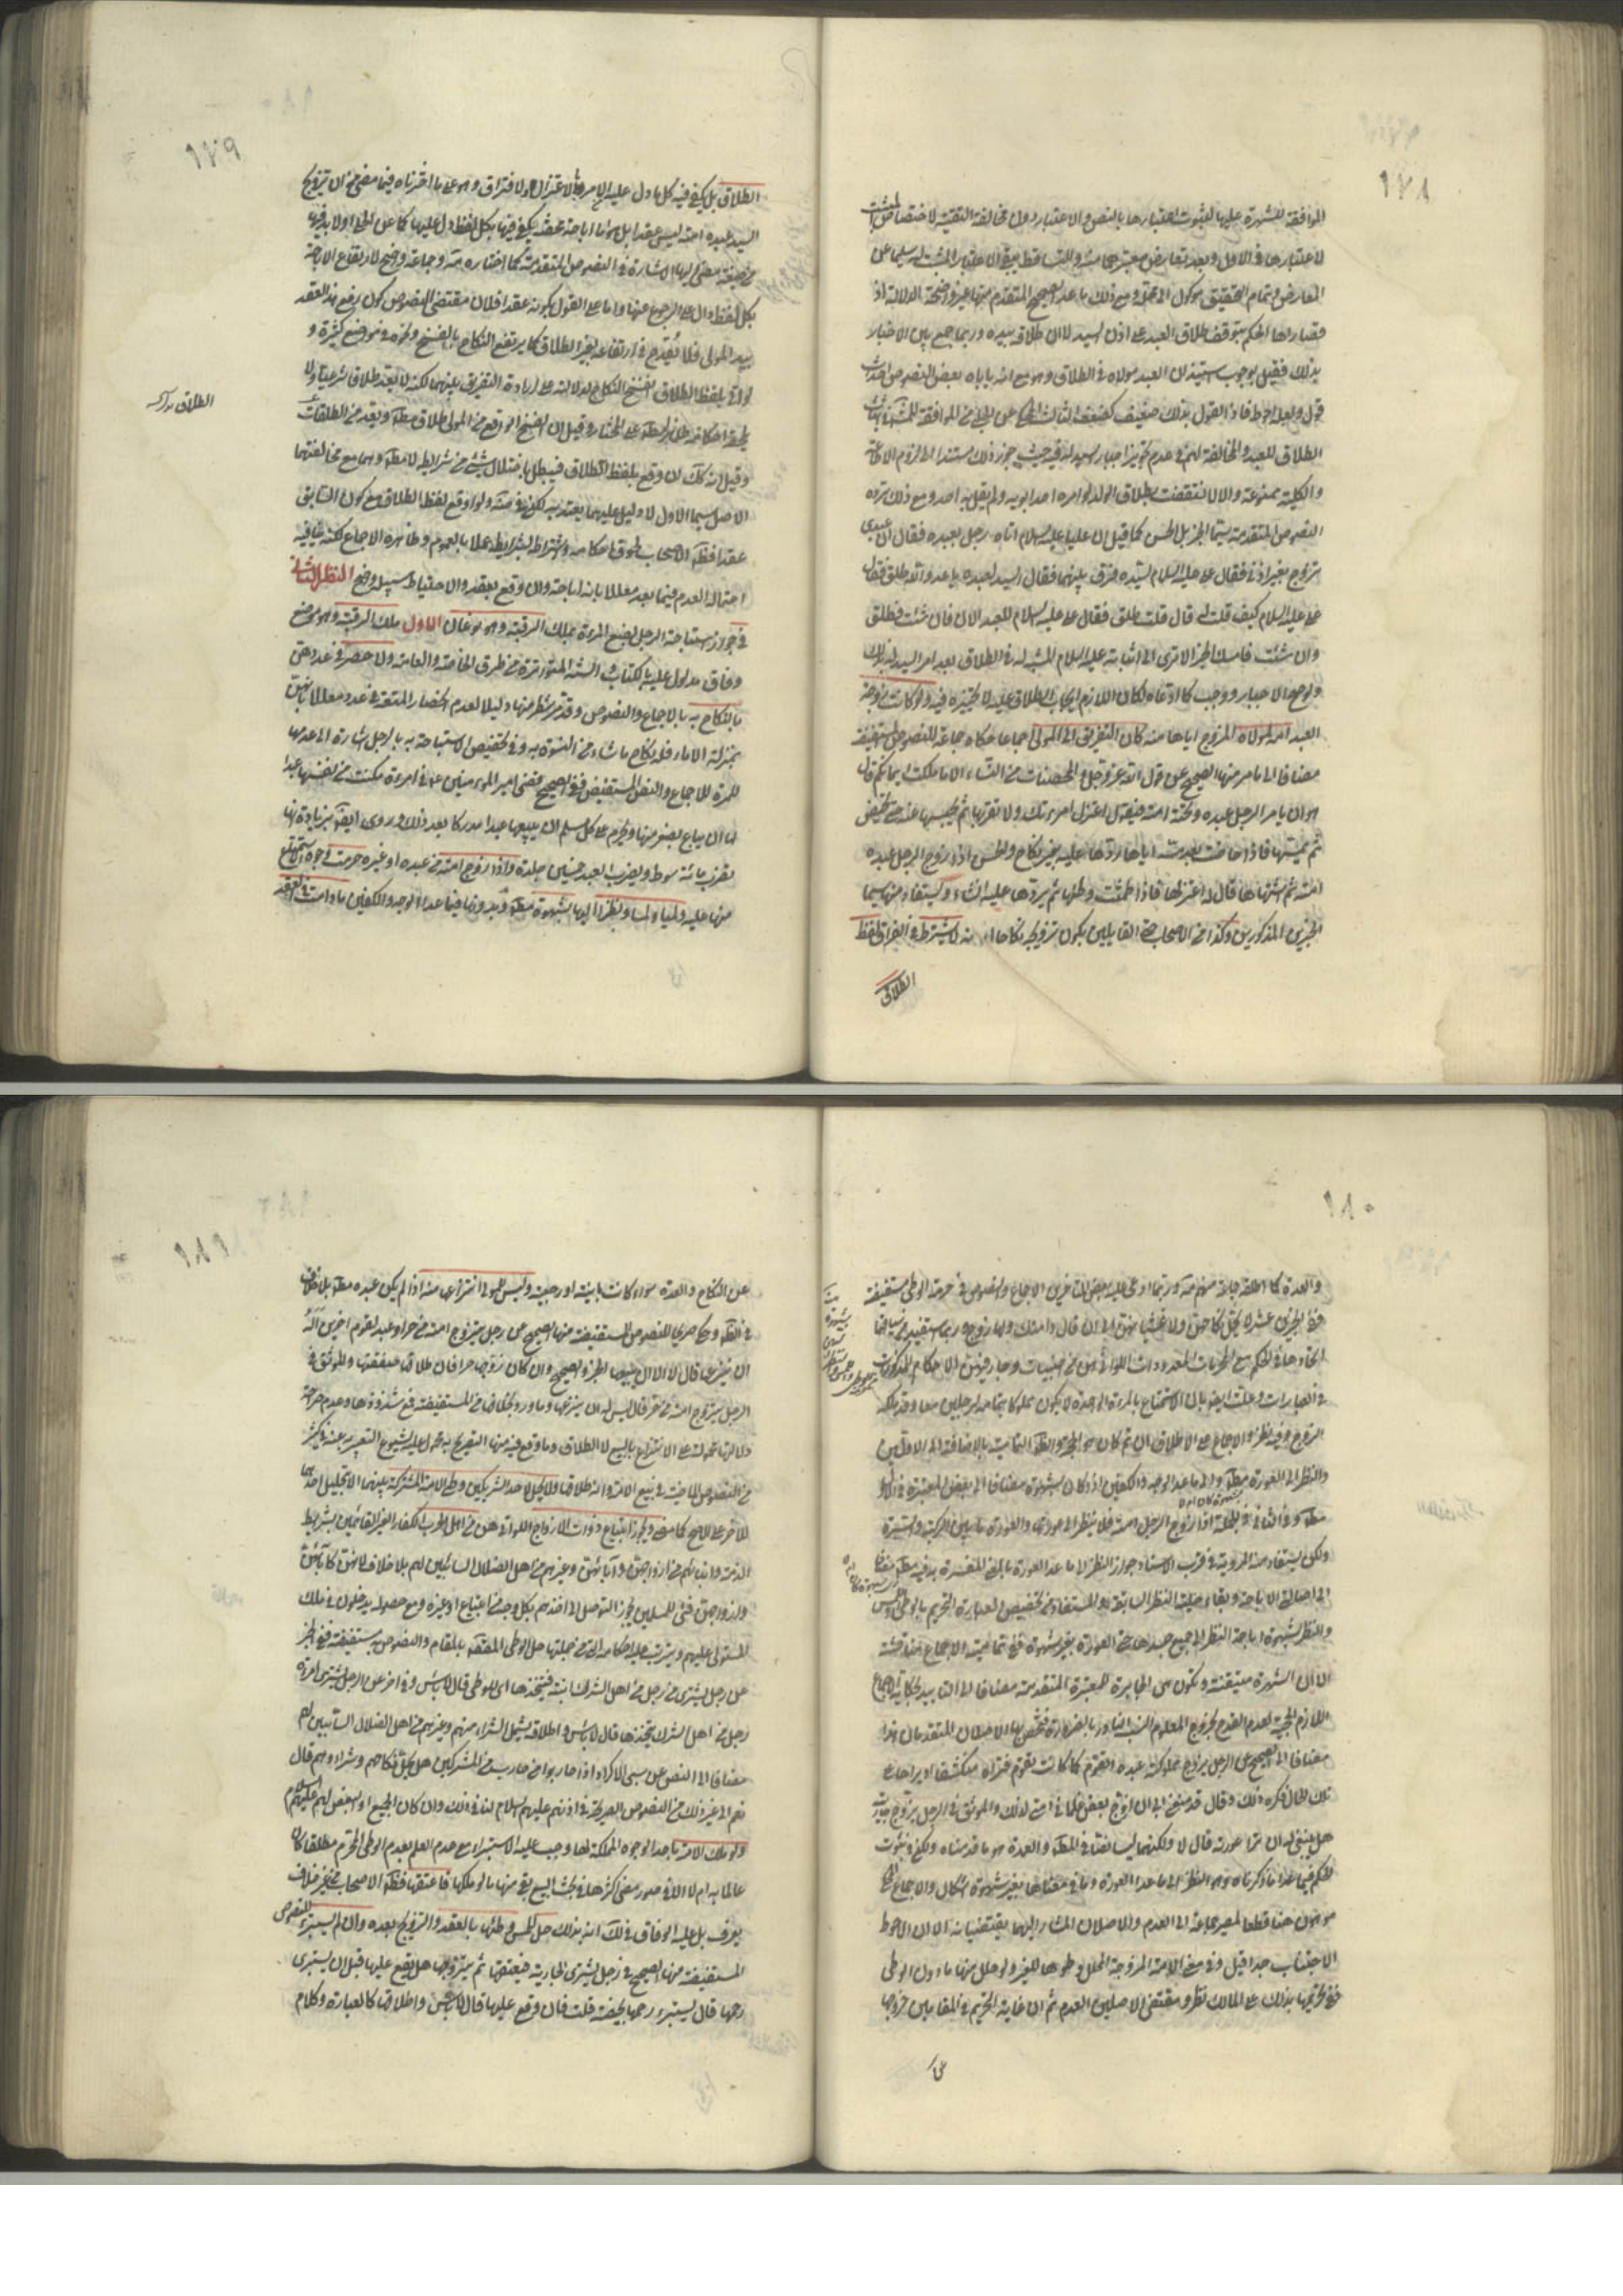 ١٧٨
الموافقة للشهرة عليها لثبوت اعتبارها بالنص والاعتبار دون مخالفة التقية لاختصاص المثبت
لاعتبارها في الاول وبعد تعارض معتبرهما منه والتساقط يبقى الاعتبار المثبت له سليما عن
المعارض وتمام التحقيق موكول الى محله ومع ذلك ما عدا الصحيح المتقدم منها غير واضحة الدلالة اذ
قصاراها الحكم بتوقف طلاق العبد على اذن السيد لا ان طلاقه بيده وربما جمع بين الاخبار
بذلك فقيل بوجوب استيذان العبد مولاه في الطلاق وهو مع انه ياباه بعض النصوص احداث
قول ولعله احوط فاذا القول بذلك ضعيف كضعف الثالث المحكي عن الحلبي من الموافقة للمشهور في اثبات
الطلاق للعبد والمخالفة لهم في عدم تجويز اجبار السيد له فيه حيث جوز ذلك مستندا الى لزوم الاطاعة
والكلية ممنوعة والا لانتقضت بطلاق الولد لو امره احد ابويه ولم يقل به احد ومع ذلك ترده
النصوص المتقدمة سيما الخبر بل الحسن كما قيل ان عليا عليه السلام اتاه رجل بعبده فقال ان عبدي
تزوج بغير اذني فقال على عليه السلام لسيده فرق بينهما فقال السيد لعبده يا عدو الله طلق فقال
على عليه السلام كيف قلت له قال قلت طلق فقال على عليه السلام للعبد الان فان شئت فطلق
وان شئت فامسك الخبر الا ترى الى اثباته عليه السلام المشية له في الطلاق بعد امر السيد له بذلك
ولو صح الاجبار ووجب كما ادعاه لكان اللازم ايجاب الطلاق عليه لا تخييره فيه ولو كانت زوجة
العبد امة لمولاه المزوج اياها منه كان التفريق الى المولى اجماعا حكاه جماعة للنصوص المستفيضة
مضافا الى ما مر منها الصحيح عن قول الله عز وجل والمحصنات من النساء الا ما ملكت ايمانكم قال
هو ان يامر الرجل عبده وتحته امته فيقول اعتزل امرءتك ولا تقربها ثم يحبسها عنه حتى تحيض
ثم يمسها فاذا حاضت بعد مسه اياها ردها عليه بغير نكاح والحسن اذا زوج الرجل عبده
امته ثم اشتهاها قال له اعتزلها فاذا طمثت وطئها ثم يردها عليه انشاء ويستفاد منها سيما
الخبرين المذكورين وكذا من الاصحاب حتى القايلين بكون تزويجه نكاحا انه لا يشترط في الفراق لفظ
الطلاق
١٧٩
الطلاق بل يكفي فيه كل ما دل عليه الامر بالاعتزال ولافتراق وهو على ما اخترناه فيما مضى من ان تزويج
السيد عبده امته ليس عقدا بل هو اباحة محضة يكفي فيها بكل لفظ دل عليها كما عن الحلي اولا بد فيها
من صيغة مضى اليها الاشارة في النصوص المتقدمة كما اختاره ثمة وجماعة واضح لارتفاع الاباحة
بكل لفظ دال على الرجوع عنها واما على القول بكونه عقدا فلان مقتضى النصوص كون رفع هذا العقد
بيد المولى فلا يقدح في ارتفاعه بغير الطلاق كما يرتفع النكاح بالفسخ ونحوه في مواضع كثيرة و
لو اتى بلفظ الطلاق انفسخ النكاح لدلالته على ارادة التفريق بينهما لكنه لا يعد طلاقا شرعيا ولا
يلحقه احكامه على المختار وقيل ان الفسخ الواقع من المولى طلاق مط ويعد من الطلقات
وقيل انه كك ان وقع بلفظ الطلاق فيبطل باختلال شيء من شرايطه لا مط وهما مع مخالفتهما
الاصل سيما الاول لا دليل عليهما يعتد به لكن في ولو اوقع لفظ الطلاق مع كون السابق
عقدا فظ الاصحاب لحوق احكامه واشتراطه بشرايطه عملا بالعموم وظاهره الاجماع لكنه ينافيه
احتماله العدم فيما بعد معللا بانه اباحة وان وقع بعقد والاحتياط سبيله واضح النظر الثاني
في جواز استباحة الرجل بضع المرءة بملك الرقبة وهو نوعان الاول ملك الرقبة وهو موضع
وفاق مدلول عليه بالكتاب والسنة المتواترة من طرق الخاصة والعامة ولا حصر في عددهن
بالنكاح به بالاجماع والنصوص وقد مر شطر منها دليلا لعدم انحصار المتعة في عدد معللا بانهن
بمنزلة الاماء فله نكاح ما شاء من النسوة به وفي تخصيص الاستباحة به بالرجل اشارة الى عدمها
للمرءة للاجماع والنص المستفيض ففي الصحيح قضى امير المؤمنين ع في امرءة مكنت من نفسها عبدا
لها ان يباع بصغر منها ويحرم على كل مسلم ان يبيعها عبدا مدركا بعد ذلك وروى ايض بزيادة انها
تضرب مائة سوط ويضرب العبد خمسين جلدة واذا زوج امته من عبده او غيره حرمت وجوه الاستمتاع
منها عليه وطيا ولمسا ونظرا اليها بشهوة مط وبدونها فيما عدا الوجه والكفين ما دامت في العقد
١٨٠
والعدة كما اطلقه جماعة منهم ثمة وربما ادعى عليه بعض المتاخرين الاجماع والنصوص في حرمة الوطى مستفيضة
ففي الخبرين عشرة لا يحل نكاحهن ولا غشيانهن الى ان قال وامتك ولها زوج وربما استفيد من سياقهما
اتحادها في الحكم مع المحرمات المعدودات اللواتي هن من اجنبيات وجار فيهن الاحكام المذكورات
في العبارات وعلت ايض بان الاستمتاع بالمرءة الواحدة لا يكون مملوكا بتمامه لرجلين معا وقد ملكه
الزوج وفيه نظر والاجماع على الاطلاق ان تم كان هو الحجة والظ التمامية بالاضافة الى الاولين
والنظر الى العورة مط والى ما عدا الوجه والكفين اذا كان بشهوة مضافا الى بعض المعتبرة في الاول
مط وفي الثاني في الجملة اذا زوج الرجل امته فلا ينظر الى عورتها والعورة ما بين الركبة والسرة
ولكن يستفاد منه المروية في قرب الاسناد جواز النظر الى ما عدا العورة بالمعنى المفسرة به فيه مط مضافا
الى اصالة الاباحة وبقاء حلية النظر السابقة والمستفاد من تخصيص العبارة التحريم بالوطى واللمس
والنظر لشهوة اباحة النظر الى جميع جسدها حتى العورة بغير شهوة ففي تمامية الاجماع مناقشة
الا ان الشهرة متيقنة وتكون هي الجابرة للمعتبرة المتقدمة مضافا الى التاييد بحكاية الاجماع
اللازم الحجية لعدم القدح بخروج المعلوم النسب النادر بالضرورة فتخص بها الاصلان المتقدمان هذا
مضافا الى الصحيح عن الرجل يزوج مملوكته عبده اتقوم كما كانت تقوم فتراه منكشفا او يراها على
تلك الحال فكره ذلك وقال قد منعني ابي ان ازوج بعض غلماني امتي لذلك والموثق في الرجل يزوج جاريته
هل ينبغي له ان ترا عورته قال لا ولكنهما ليسا نصا في المط والعدة هو ما قدمناه ولكن في ثبوت
الحكم فيما عدا ما ذكرناه وهو النظر الى ما عدا العورة وما في معناها بغير شهوة اشكال والاجماع المحكي
موهون هنا قطعا لمصير جماعة الى العدم والاصلان المشار اليهما يقتضيانه الا ان الاحوط
الاجتناب جدا قيل وفي معنى الامة المزوجة المحلل وطيها للغير ولو حلل منها ما دون الوطى
ففي تحريمها بذلك على المالك نظر ومقتضى الاصلين العدم ثم ان غاية التحريم في المقامين خروجها
عن
١٨١
عن النكاح والعدة سواء كانت باينة او رجعية وليس للمولى انتزاعها منه اذا لم يكن عبده مط بلا خلاف
في الظ وحكى صريحا للنصوص المستفيضة منها الصحيح عن رجل يزوج امته من حر او عبد لقوم اخرين اله
ان ينتزعها قال لا الا ان يبيعها الخبر والصحيح وان كان زوجها حرا فان طلاقها صفقتها والموثق في
الرجل يزوج امته من حر قال ليس له ان ينزعها وما ورد بخلافها من المستفيضة فمع شذوذها وعدم صراحة
دلالتها محمولة على الانتزاع بالبيع لا الطلاق وما وقع فيه منها التصريح به محمول عليه لشيوع التعبير به عنه في كثير
من النصوص الماضية في بيع الامة وانه طلاقها ولا يحل لاحد الشريكين وطى الامة المشتركة بينهما الا بتحليل احدهما
للاخر على الاصح كما مضى ويجوز ابتياع ذوات الازواج اللواتي هن من اهل الحرب الكفار الغير القائمين بشرايط
الذمة وابنائهم من ازواجهن وآبائهن وغيرهم من اهل الضلال السابين لهم بلا خلاف لانهن كآبائهن
وازواجهن فئ للمسلمين يجوز التوصل الى اخذهم بكل وجه من ابتياع او غيره ومع حصوله يدخلون في ملك
المستولى عليهم ويترتب عليه احكامه التي من جملتها حل الوطى المقصد بالمقام والنصوص به مستفيضة ففي الخبر
عن رجل يشترى من رجل من اهل الشرك ابنته فيتخذها اى للوطى قال لا باس وفي اخر عن الرجل يشترى امرءة
رجل من اهل الشرك يتخذها قال لا باس واطلاقه يشمل الشراء منهم وغيرهم من اهل الضلال السابين لهم
مضافا الى النص عن سبي الاكراد اذا حاربوا من حارب من المشركين هل يحل نكاحهم وشراؤهم قال
نعم الى غير ذلك من النصوص الصريحة في اذنهم عليهم السلام لنا في ذلك وان كان الجميع او البعض لهم عليهم السلام
ولو ملك الامة باحد الوجوه المملكة لها وجب عليه الاستبراء مع عدم العلم بعدم الوطى المحترم مطلقا كان
عالما به ام لا الا في صور مضى اكثرها في بحث البيع بقي منها ما لو ملكها فاعتقها فظ الاصحاب من غير خلاف
يعرف بل عليه الوفاق في لك انه بذلك حل للمس وطئها بالعقد والتزويج بعده وان لم يستبرء للنصوص
المستفيضة منها الصحيح في رجل يشترى الجارية فيعتقها ثم يتزوجها هل يقع عليها قبل ان يستبرى
رحمها قال يستبرء رحمها بحيضة قلت فان وقع عليها قال لا باس واطلاقها كالعبارة وكلام